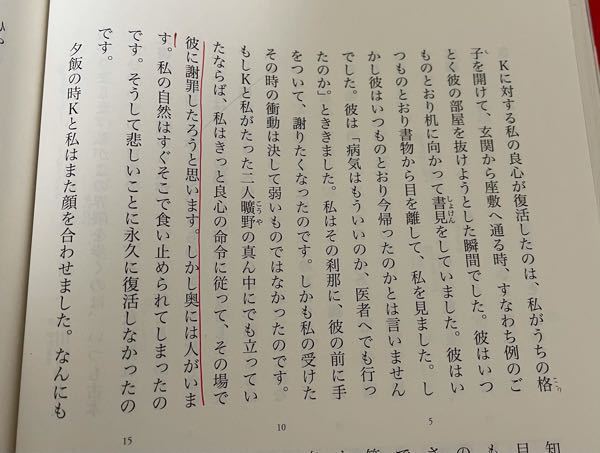 Kに対する私の良心が復活したのは、私がうちの格
こう
子を開けて、玄関から座敷へ通る時、すなわち例のご
とく彼の部屋を抜けようとした瞬間でした。彼はいつ
ものとおり机に向かって書見をしていました。彼はい
しょけん
つものとおり書物から目を離して、私を見ました。し
かし彼はいつものとおり今帰ったのかとは言いません
でした。彼は「病気はもういいのか、医者へでも行っ
たのか」とききました。私はその刹那に、彼の前に手
をついて、謝りたくなったのです。しかも私の受けた
その時の衝動は決して弱いものではなかったのです。
もしKと私がたった二人曠野の真ん中にでも立ってい
こうや
たならば、私はきっと良心の命令に従って、その場で
彼に謝罪したろうと思います。しかし奥には人がいま
す。私の自然はすぐそこで食い止められてしまったの
です。そうして悲しいことに永久に復活しなかったの
です。
夕飯の時Kと私はまた顔を合わせました。なんにも
5
10
15